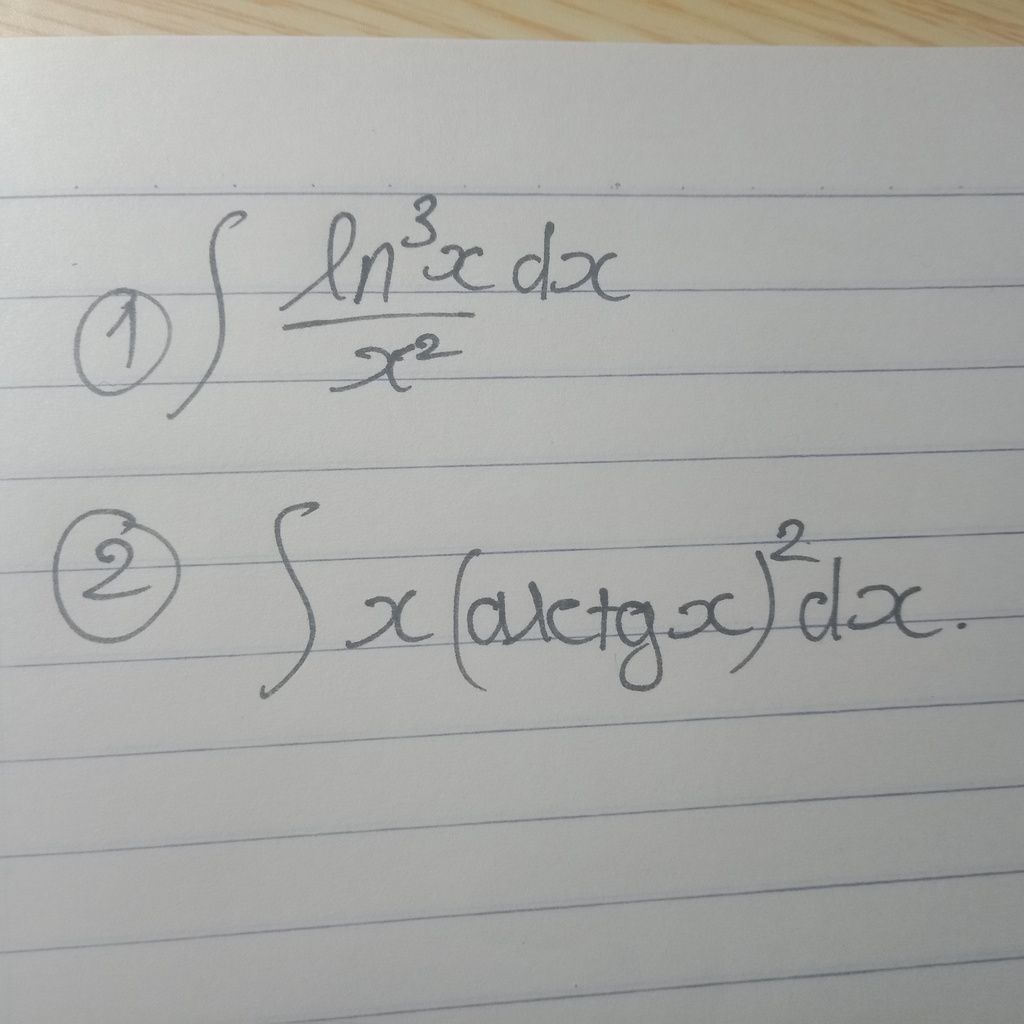 ① ∫ ln³x dx / x²
② ∫ x (arctg x)² dx.